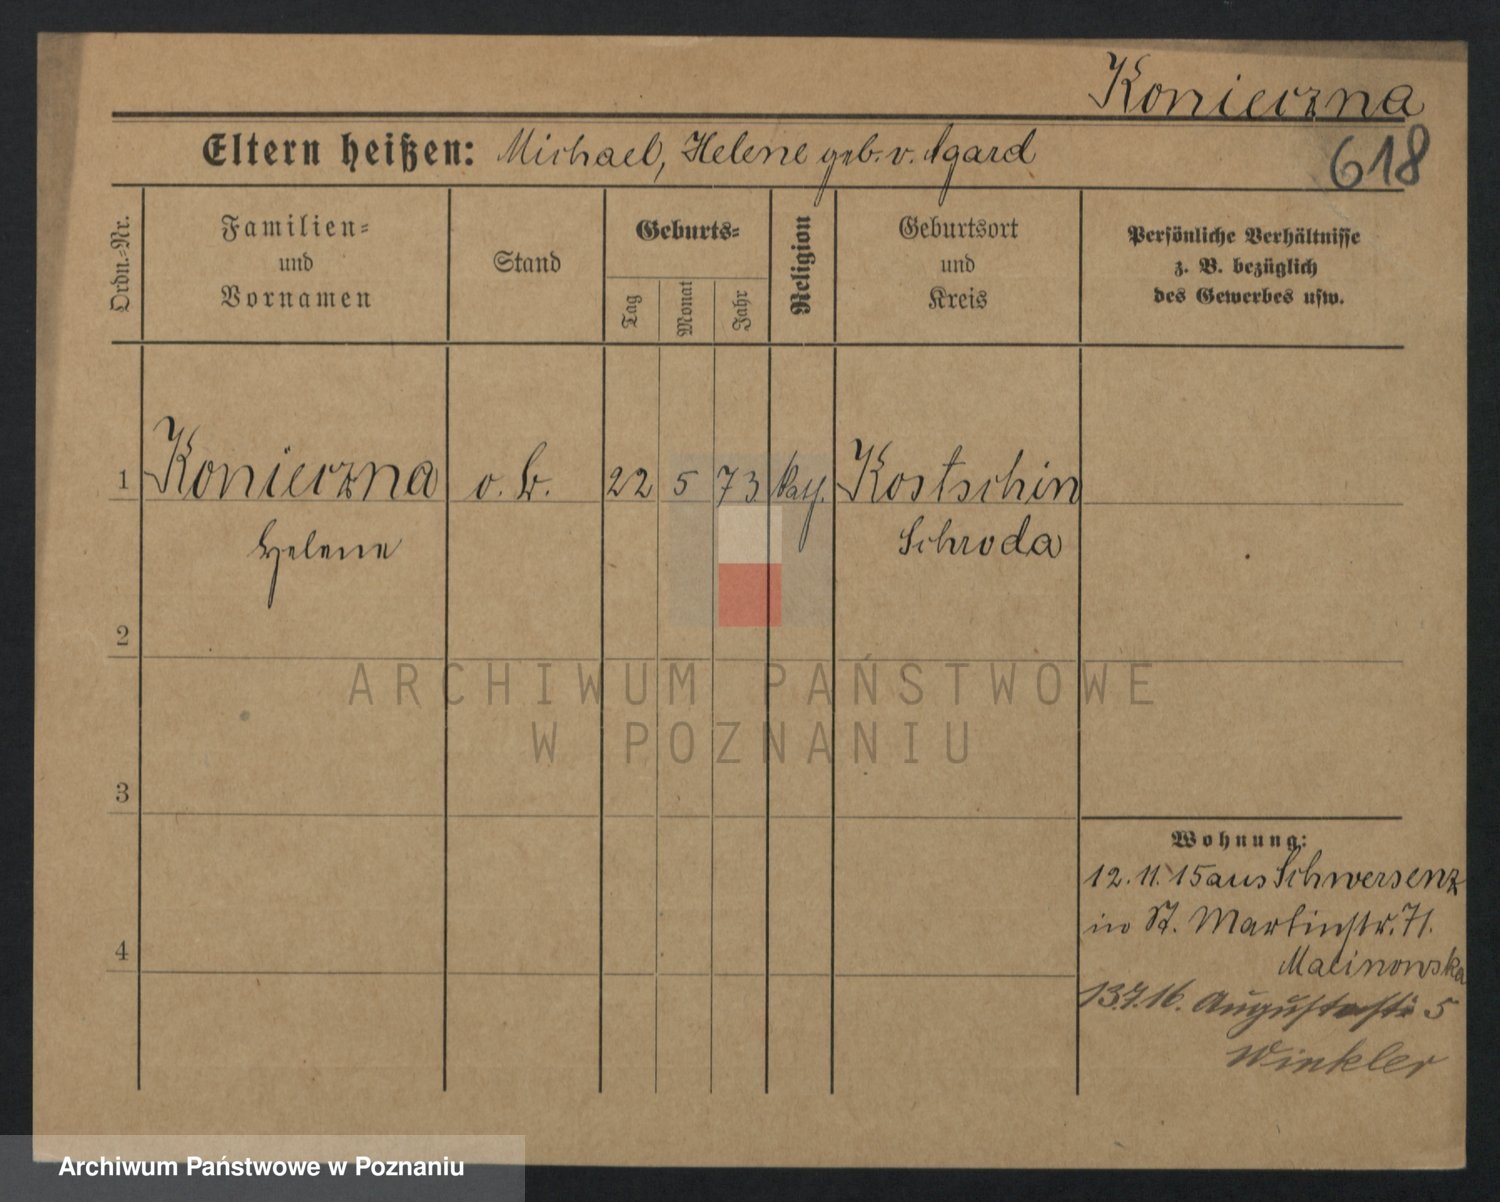 Konieczna
618
Eltern heißen: Michael, Helene geb. v. Agard
Ordn.-Nr.
Familien-
und
Vornamen
Stand
Geburts-
Tag
Monat
Jahr
Religion
Geburtsort
und
Kreis
Persönliche Verhältnisse
z. B. bezüglich
des Gewerbes usw.
1 Konieczna o. B. 22 5 73 kath. Kostschin
Helene Schroda
2
ARCHIWUM PAŃSTWOWE
W POZNANIU
3
Wohnung:
12. 11. 15 aus Schwersenz
in St. Martinstr. 71.
4
Malinowska
13.7.16. Augustastr 5
Winkler
Archiwum Państwowe w Poznaniu